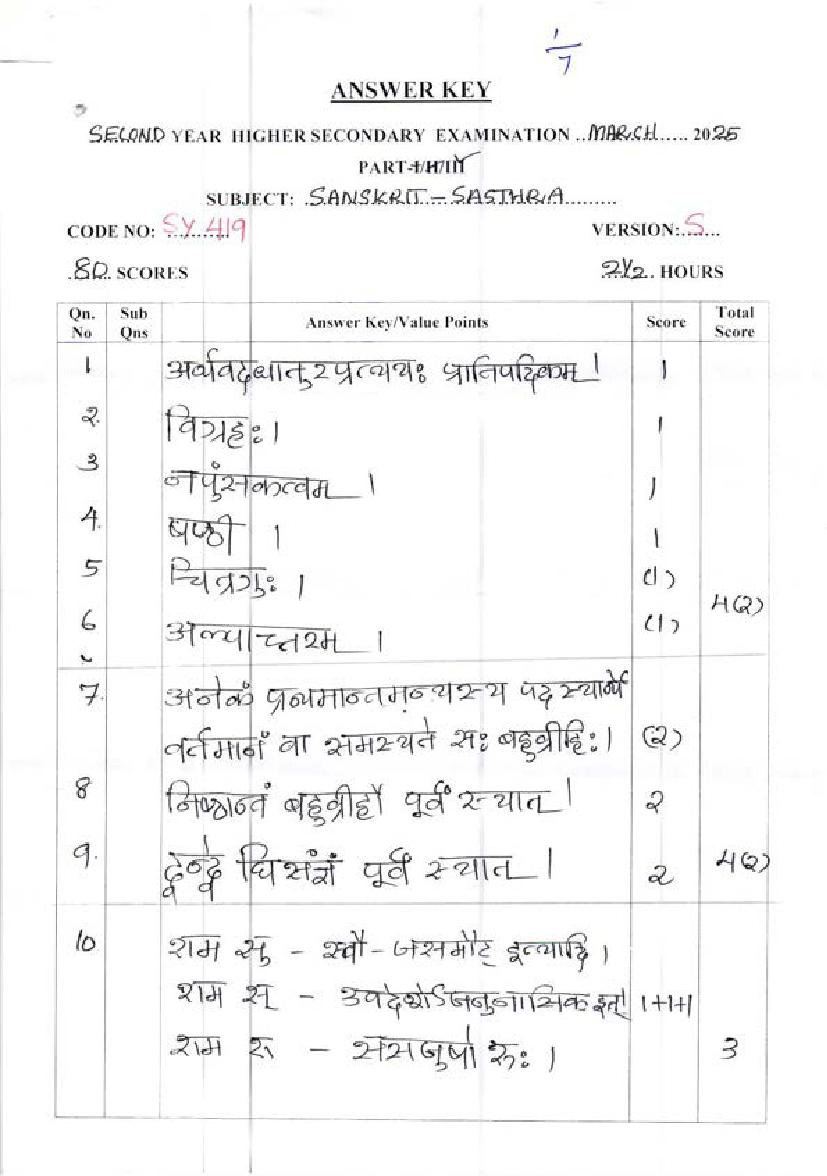 1/7
ANSWER KEY
SECOND YEAR HIGHER SECONDARY EXAMINATION ..MARCH..... 2025
PART-I/II/III
SUBJECT: .SANSKRIT - SASTHRA.........
CODE NO: SY 419 VERSION: S
80 SCORES 2½ HOURS
Qn. No Sub Qns Answer Key/Value Points Score Total Score
1 अर्थवदधातुरप्रत्ययः प्रातिपदिकम् । 1
2. विग्रहः । 1
3 नपुंसकत्वम् । 1
4. षष्ठी । 1
5 चित्रगुः । (1)
4(2)
6 अल्पाच्तरम् । (1)
7. अनेकं प्रथमान्तमन्यस्य पदस्यार्थे
वर्तमानं वा समस्यते सः बहुव्रीहिः । (2)
8 निष्ठान्तं बहुव्रीहौ पूर्वं स्यात् । 2
9. द्वन्द्वे घिसंज्ञं पूर्वं स्यात् । 2 4(2)
10 राम सु - स्वौ-जसमौट् इत्यादि ।
राम स् - उपदेशेऽजनुनासिक इत् 1+1+1
राम रु - ससजुषो रुः । 3